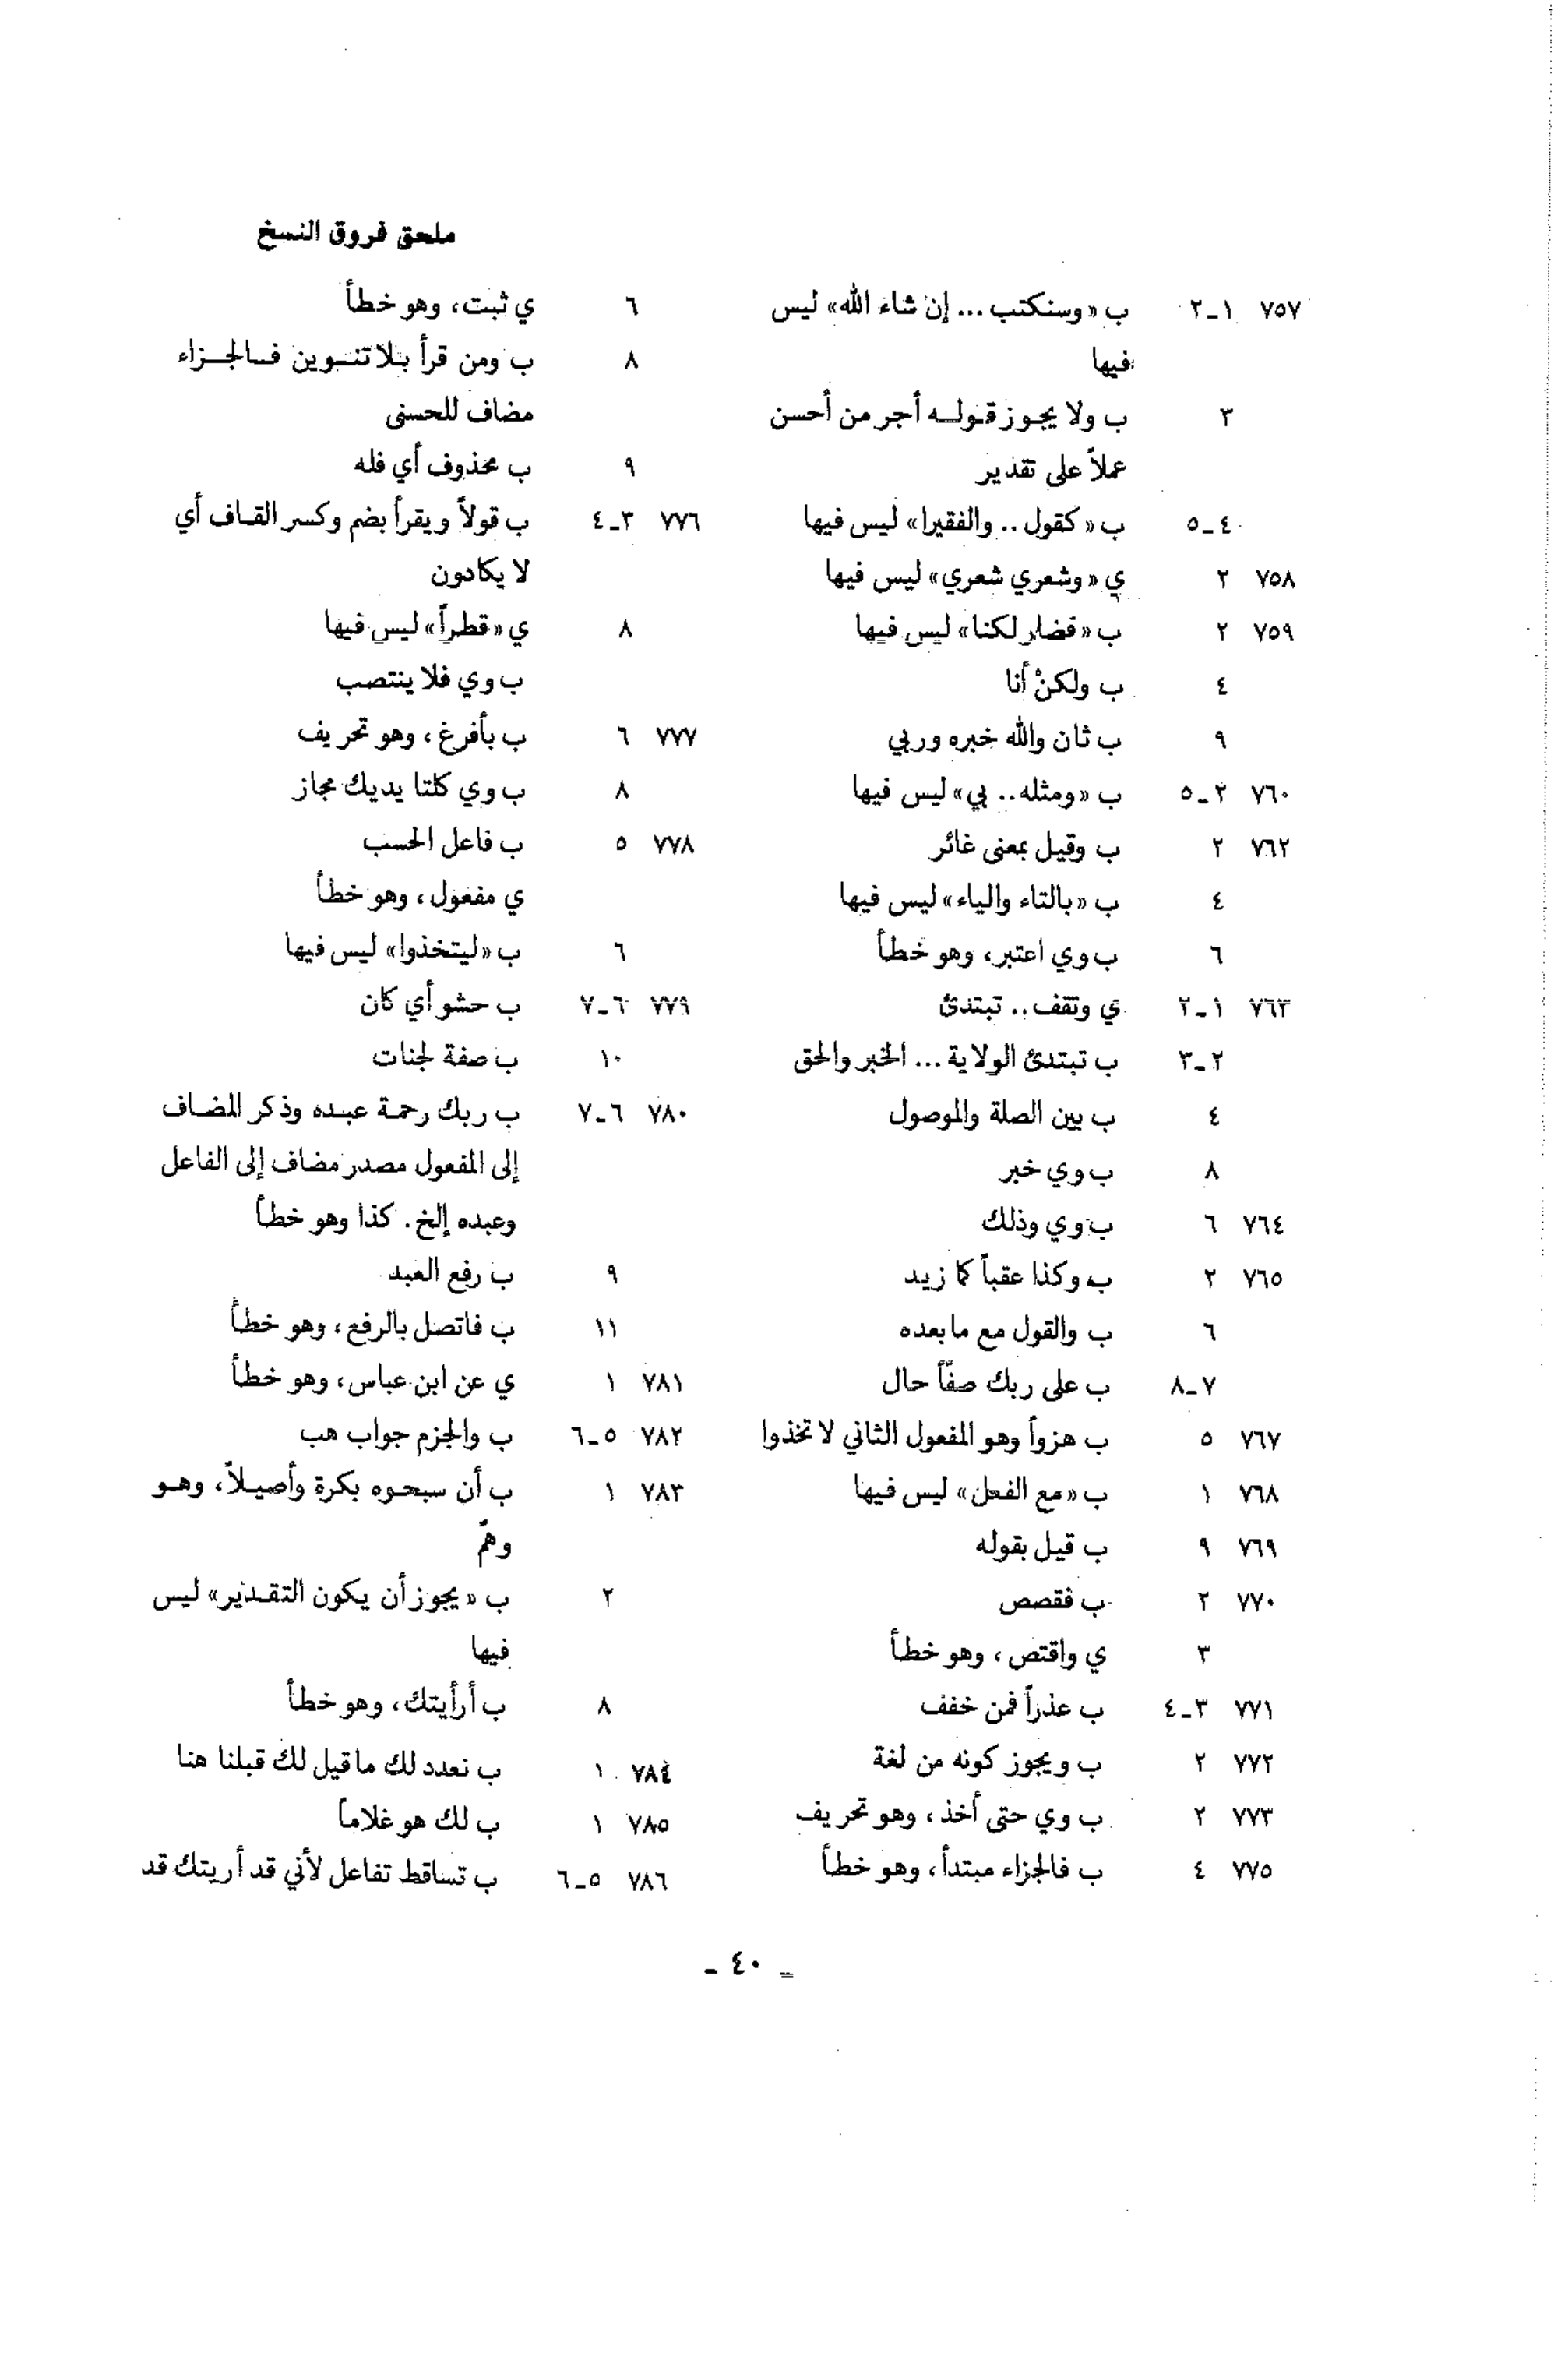 ملحق فروق النسخ
٧٥٧ ١ـ٢ ب «وسنكتب ... إن شاء الله» ليس
فيها
٣ ب ولا يجوز قوله أجر من أحسن
عملاً على تقدير
٤ـ٥ ب «كقول .. والفقيرا» ليس فيها
٧٥٨ ٢ ي «وشعري شعري» ليس فيها
٧٥٩ ٢ ب «فضار لكنا» ليس فيها
٤ ب ولكنْ أنا
٩ ب ثان والله خبره وربي
٧٦٠ ٢ـ٥ ب «ومثله .. بي» ليس فيها
٧٦٢ ٢ ب وقيل بمعنى غائر
٤ ب «بالتاء والياء» ليس فيها
٦ ب وي اعتبر، وهو خطأ
٧٦٣ ١ـ٢ ي وتقف .. تبتدئ
٢ـ٣ ب تبتدئ الولاية ... الخبر والحق
٤ ب بين الصلة والموصول
٨ ب وي خبر
٧٦٤ ٦ ب وي وذلك
٧٦٥ ٢ ب وكذا عقباً كما زيد
٦ ب والقول مع مابعده
٧ـ٨ ب على ربك صفّاً حال
٧٦٧ ٥ ب هزواً وهو المفعول الثاني لا تخذوا
٧٦٨ ١ ب «مع الفعل» ليس فيها
٧٦٩ ٩ ب قيل بقوله
٧٧٠ ٢ ب فقصص
٣ ي واقتص، وهو خطأ
٧٧١ ٣ـ٤ ب عذراً فمن خفف
٧٧٢ ٢ ب ويجوز كونه من لغة
٧٧٣ ٢ ب وي حتى أخذ، وهو تحريف
٧٧٥ ٤ ب فالجزاء مبتدأ، وهو خطأ
٦ ي ثبت، وهو خطأ
٨ ب ومن قرأ بلا تنوين فالجزاء
مضاف للحسنى
٩ ب محذوف أي فله
٧٧٦ ٣ـ٤ ب قولاً ويقرأ بضم وكسر القاف أي
لا يكادون
٨ ي «قطراً» ليس فيها
ب وي فلا ينتصب
٧٧٧ ٦ ب بأفرغ، وهو تحريف
٨ ب وي كلتا يديك مجاز
٧٧٨ ٥ ب فاعل الحسب
ي مفعول، وهو خطأ
٦ ب «ليتخذوا» ليس فيها
٧٧٩ ٦ـ٧ ب حشو أي كان
١٠ ب صفة لجنات
٧٨٠ ٦ـ٧ ب ربك رحمة عبده وذكر المضاف
إلى المفعول مصدر مضاف إلى الفاعل
وعبده إلخ. كذا وهو خطأ
٩ ب رفع العبد
١١ ب فاتصل بالرفع، وهو خطأ
٧٨١ ١ ي عن ابن عباس، وهو خطأ
٧٨٢ ٥ـ٦ ب والجزم جواب هب
٧٨٣ ١ ب أن سبحوه بكرة وأصيلاً، وهو
وهمٌ
٢ ب «يجوز أن يكون التقدير» ليس
فيها
٨ ب أرأيتك، وهو خطأ
٧٨٤ ١ ب نعدد لك ماقيل لك قبلنا هنا
٧٨٥ ١ ب لك هو غلاماً
٧٨٦ ٥ـ٦ ب تساقط تفاعل لأني قد أريتك قد
ـ ٤٠ ـ